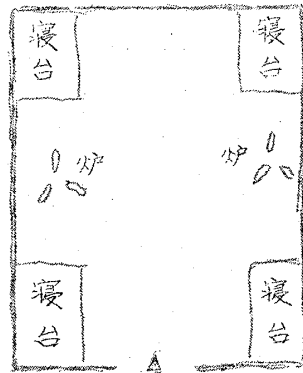 寝台
寝台
炉
炉
寝台
寝台